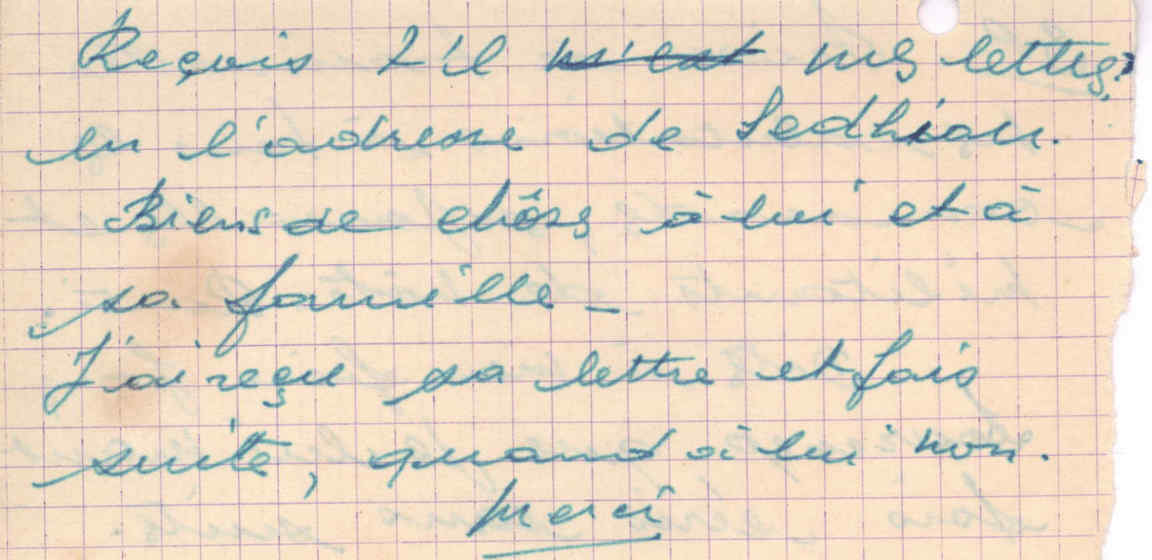 Reçois t il m'est mes lettres?
en l'adresse de Sedhiou.
Biens de chôses à lui et à
sa famille -
J'ai reçu sa lettre et fais
suite, quand à lui non.
Merci